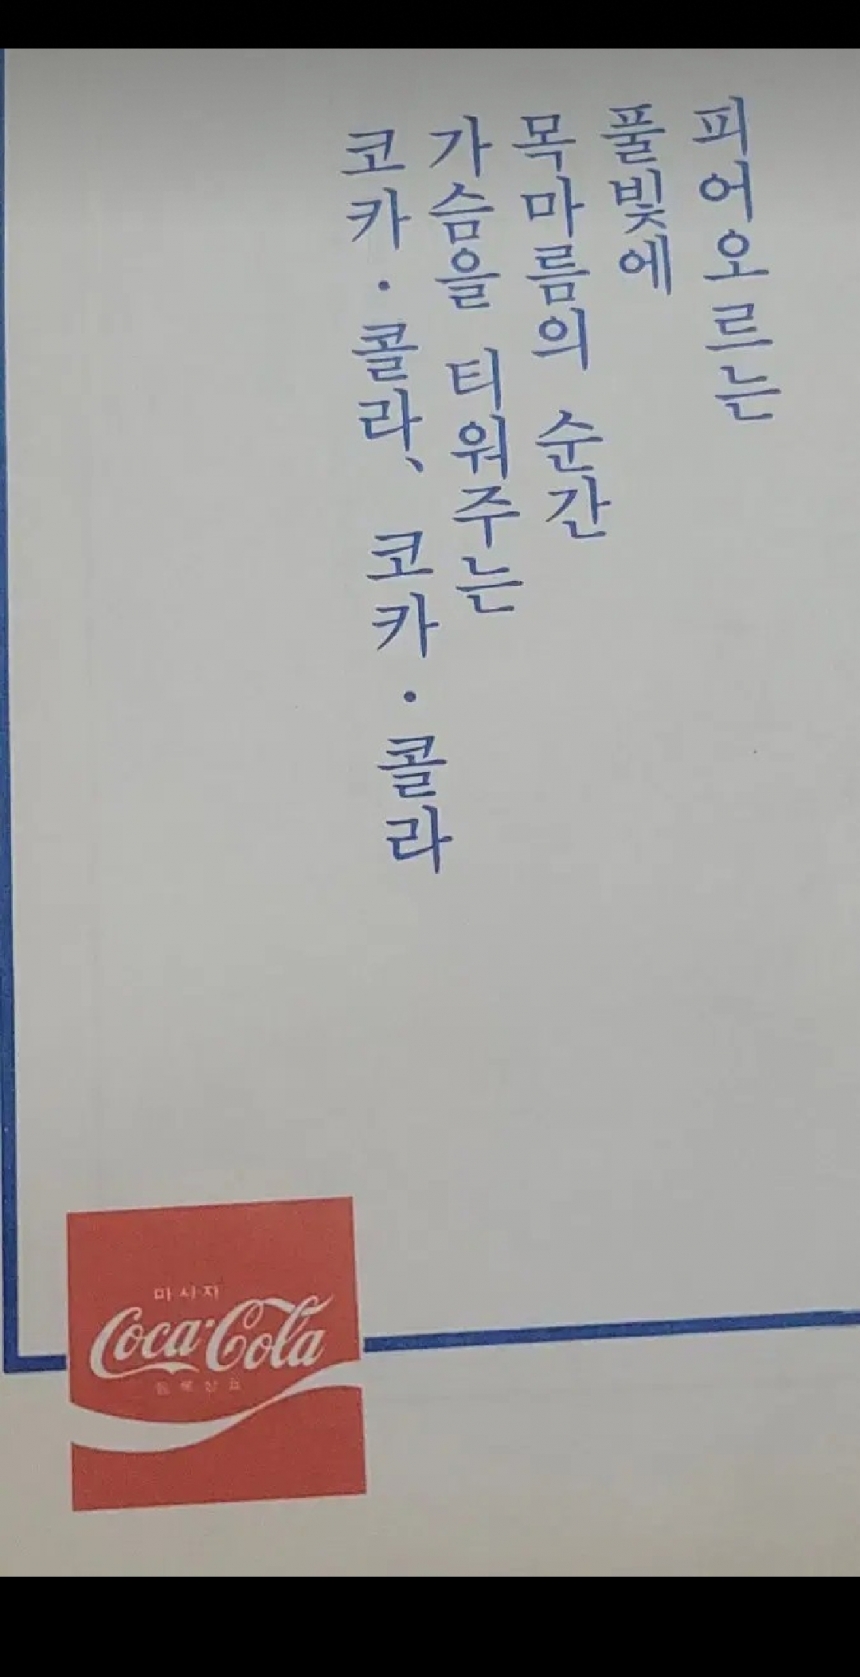 피어오르는
풀빛에
목마름의 순간
가슴을 티워주는
코카·콜라, 코카·콜라
마시자
Coca-Cola
등록상표